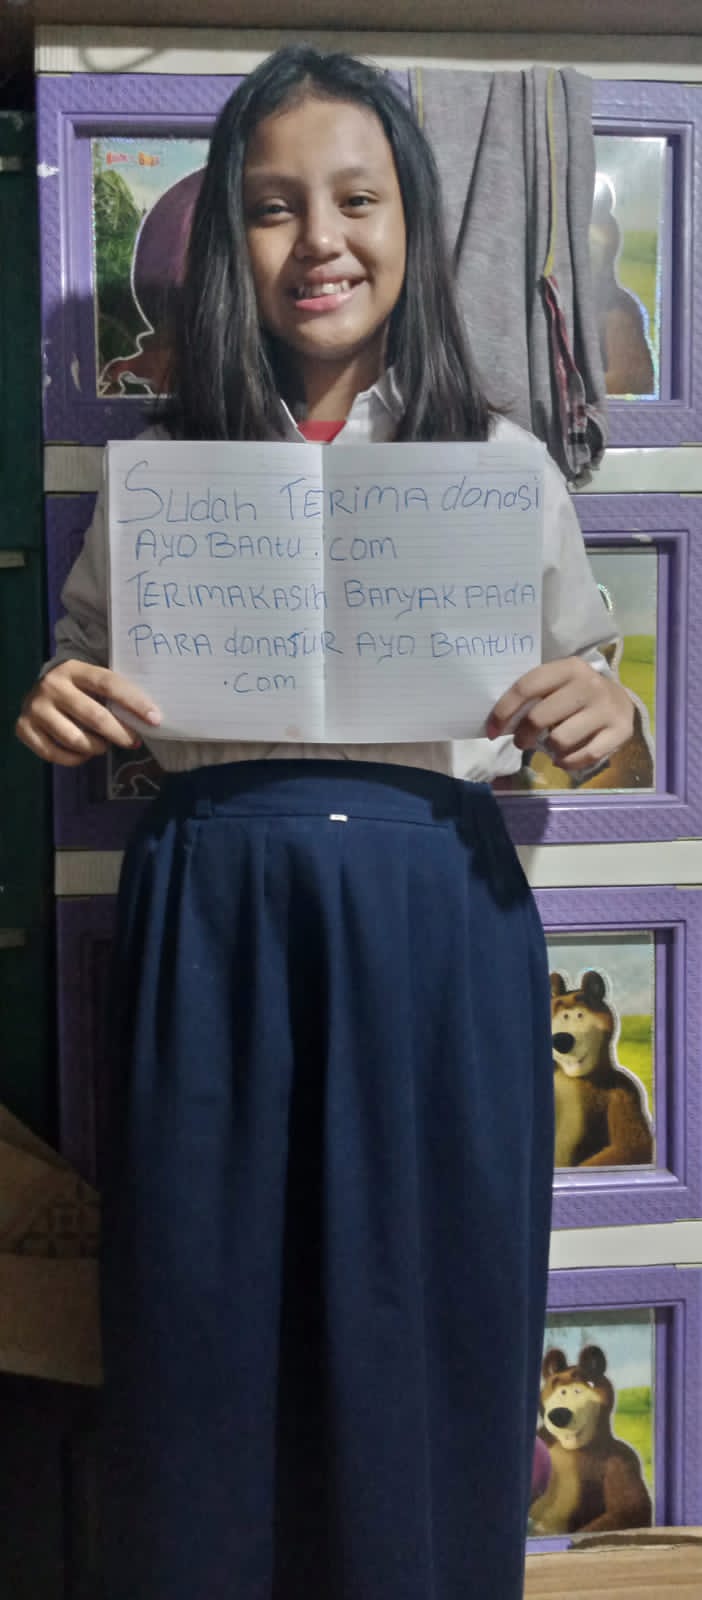 Sudah TERIMA donasi
AYO BANtu.com
TERIMAKASIH BANYAK PAdA
PARA donASUR AYO BANtuin
.com